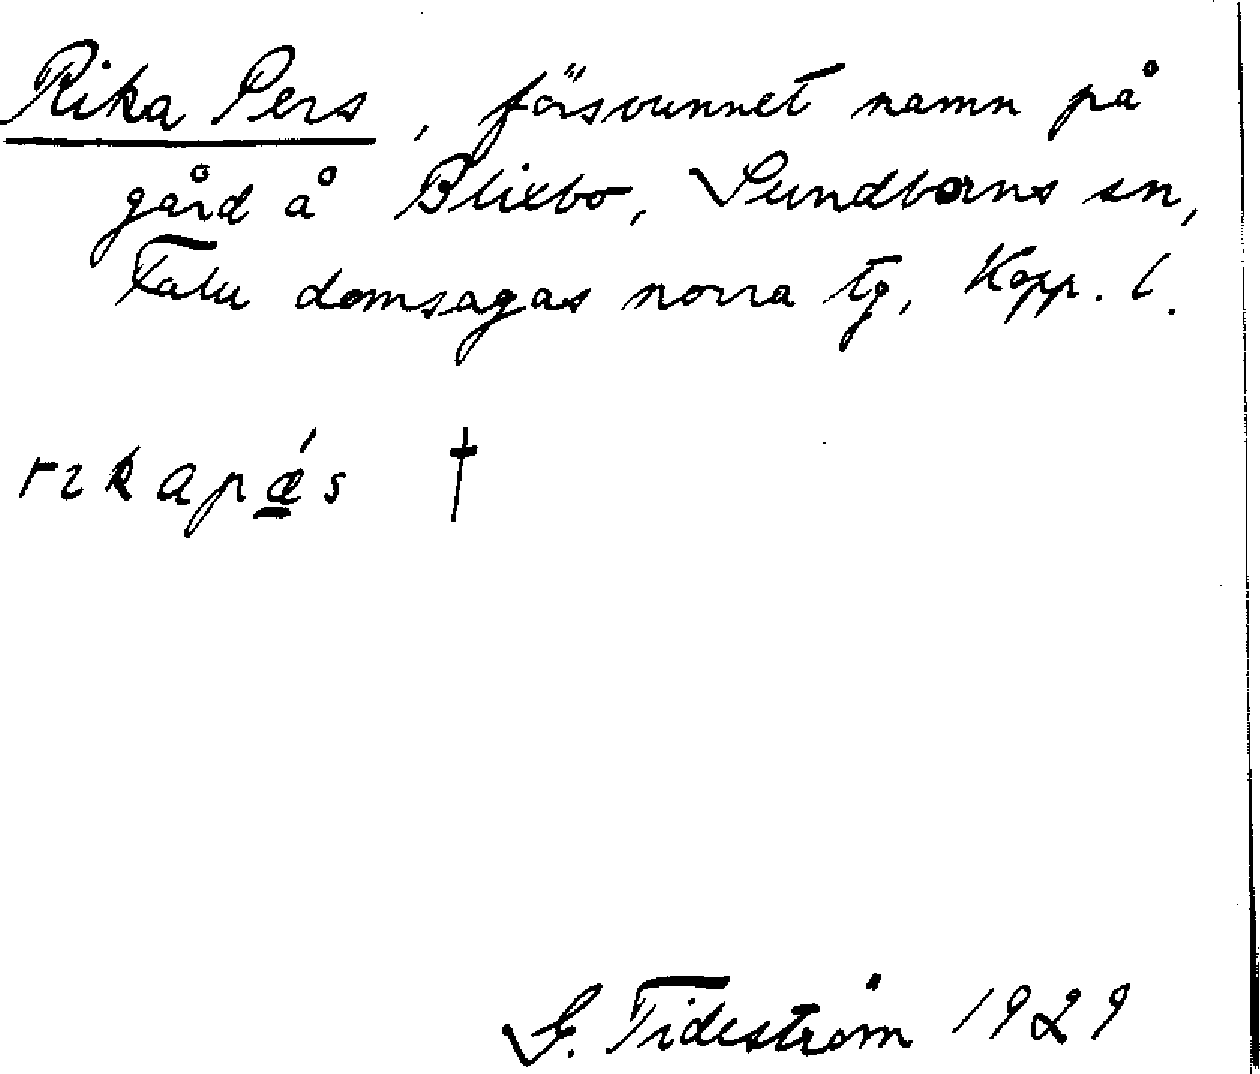 Rika Pers, försvunnet namn på
gård å Blixbo, Sundborns sn,
Falu domsagas norra tg, Kopp. l.
rıkapǽs †
G. Tideström 1929